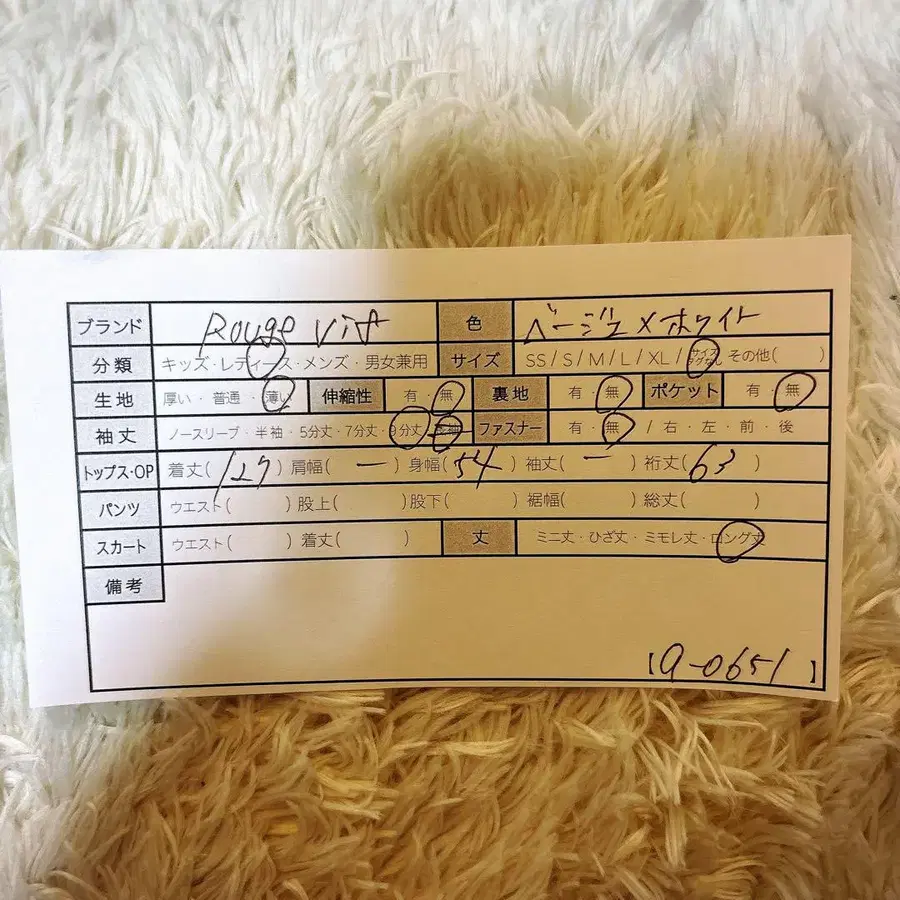 ブランド Rouge vif 色 ベージュ×ホワイト
分類 キッズ・レディース・メンズ・男女兼用 サイズ SS/S/M/L/XL/サイズタグなし その他( )
生地 厚い・普通・薄い 伸縮性 有・無 裏地 有・無 ポケット 有・無
袖丈 ノースリーブ・半袖・5分丈・7分丈・9分丈・長袖 ファスナー 有・無 / 右・左・前・後
トップス・OP 着丈(127) 肩幅(ー) 身幅(54) 袖丈(ー) 裄丈(63)
パンツ ウエスト( ) 股上( ) 股下( ) 裾幅( ) 総丈( )
スカート ウエスト( ) 着丈( ) 丈 ミニ丈・ひざ丈・ミモレ丈・ロング丈
備考
【a-0651】